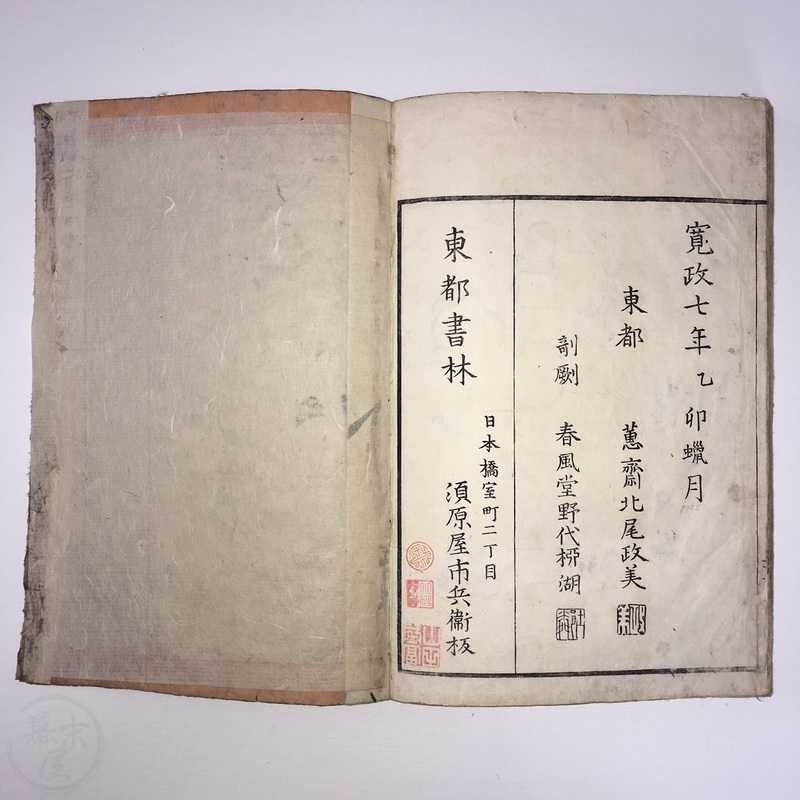 寛政七年乙卯蠟月
東都 蕙齋北尾政美
剞劂 春風堂野代柳湖
東都書林
日本橋室町二丁目
須原屋市兵衛板
幕末屋